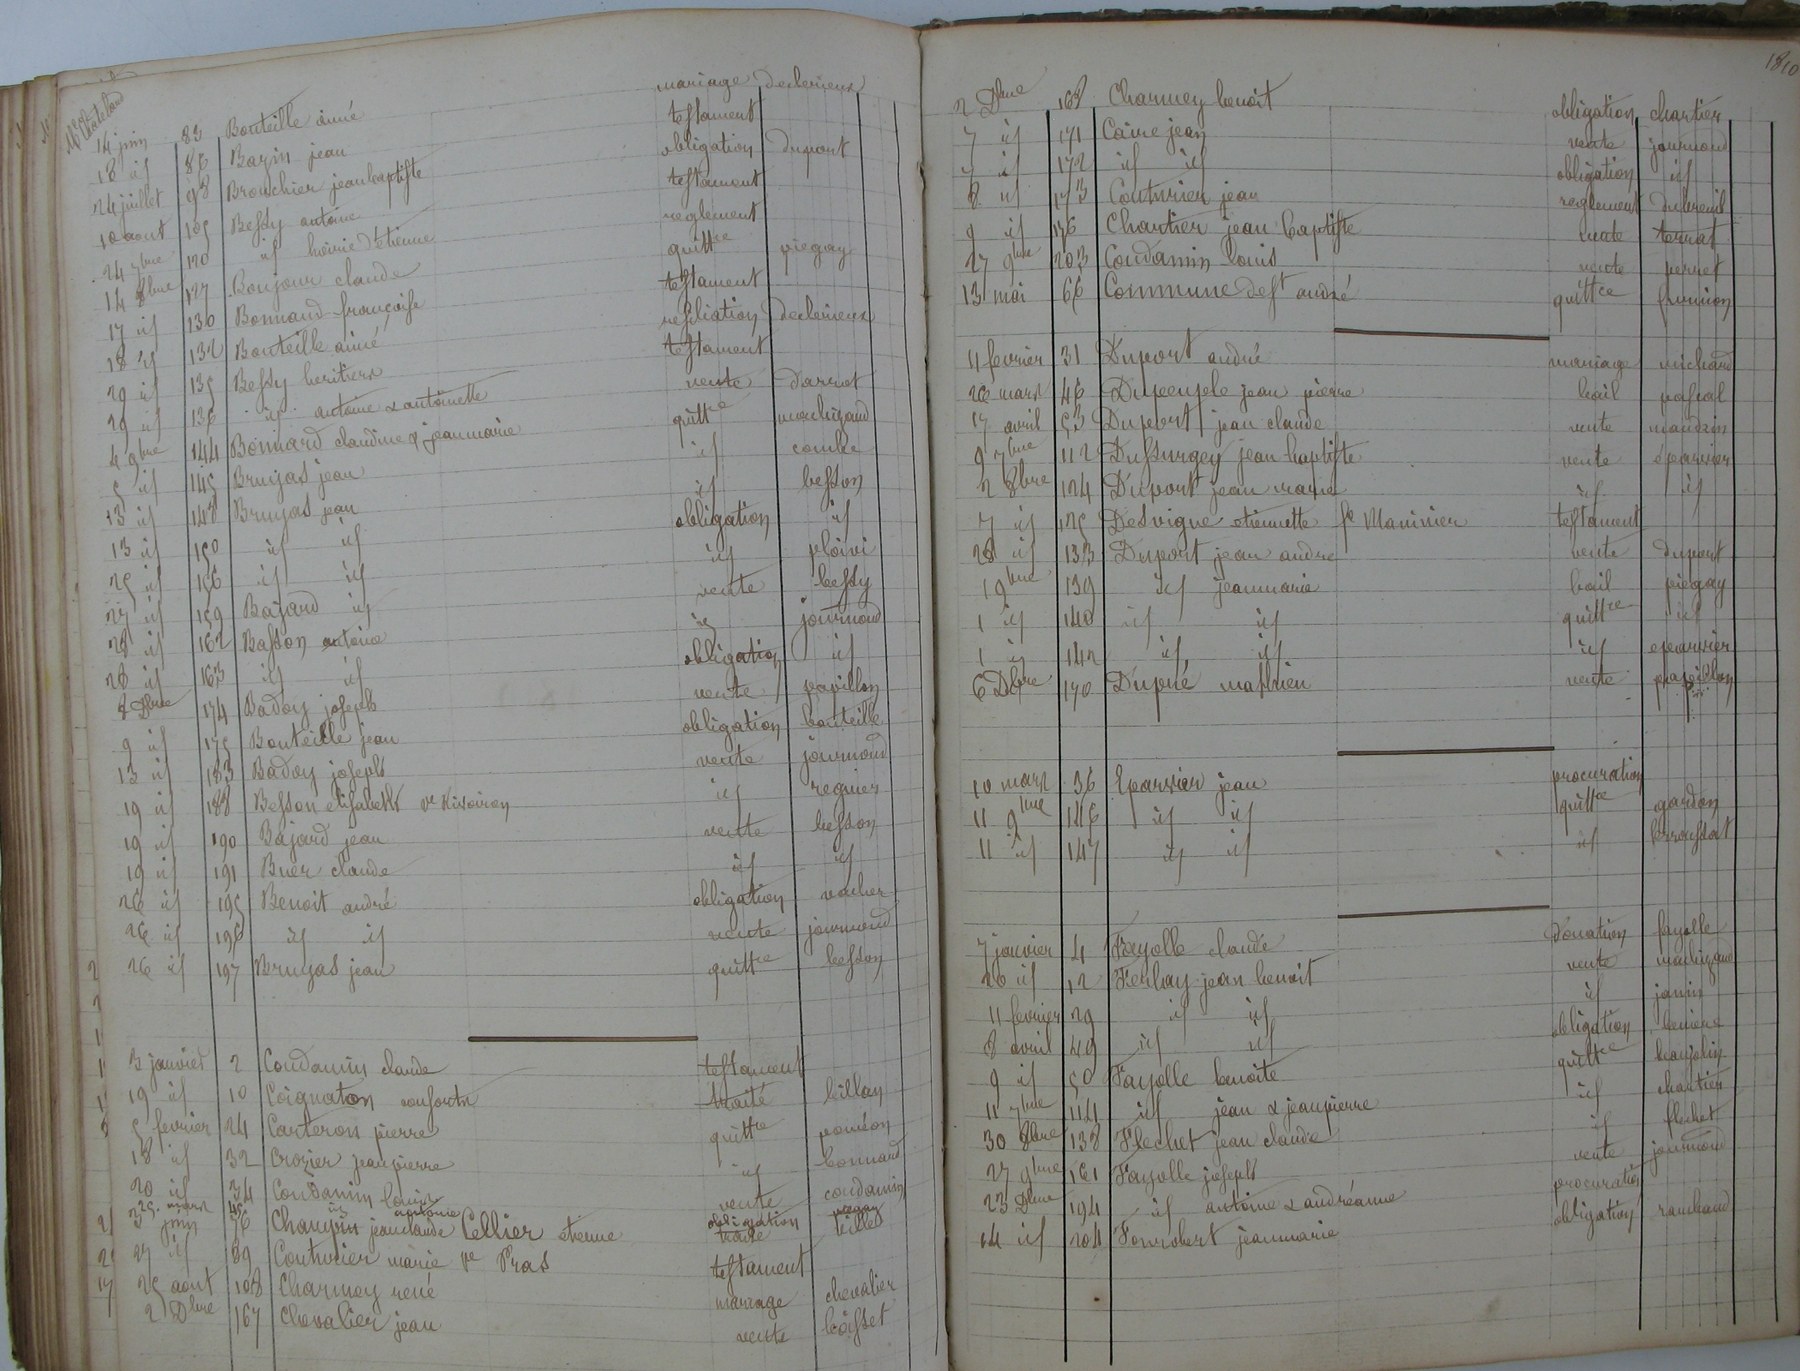 Me Chateland
14 juin 83 Bouteille aimé mariage declerieux
18 id 86 Bazin jean testament
24 juillet 98 Brouchier jean baptiste obligation dupont
10 aout 105 Bessy antoine testament
24 7bre 120 id hoirie d'etienne reglement
14 8bre 127 Bonjour claude quittce piegay
17 id 130 Bonnand françoise testament
18 id 132 Bouteille aimé resiliation declerieux
29 id 135 Bessy heritiers testament
29 id 136 id antoine & antoinette vente darnet
4 9bre 144 Bonnard claudine & jeanmarie quittce
5 id 145 Brujas jean id combe
13 id 148 Brujas jean id besson
13 id 150 id id obligation id
25 id 156 id id id ploivi
27 id 159 Bajard id vente bessy
28 id 162 Basson antoine id journoud
28 id 163 id id obligation id
8 Dbre 174 Badoy joseph vente papillon
9 id 175 Bouteille jean obligation bouteille
13 id 183 Badoy joseph vente journoud
19 id 188 Besson elisabeth ve id regnier
19 id 190 Bajard jean vente besson
19 id 191 Buer claude id id
26 id 195 Benoit andré obligation vacher
26 id 196 id id vente journoud
26 id 197 Brujas jean quittce besson
3 janvier 2 Coudamin claude testament
19 id 10 Coignaton consorts traité billan
5 fevrier 24 Carteron pierre quittce
18 id 32 Crozier jeanpierre id bonnard
20 id 34 Coudamin louis vente coudamin
25 mars 45 id antoine obligation
3 juin 76 Chaupin jeanclaude Cellier etienne traité teillet
27 id 89 Couturier marie ve Pras testament
25 aout 108 Charmey rené mariage chevalier
2 Dbre 167 Chevalier jean vente boisset
1810
2 Dbre 168 Charmey benoit obligation chartier
7 id 171 Caire jean vente journoud
7 id 172 id id obligation id
8 id 173 Couturier jean reglement dubreuil
9 id 176 Chartier jean baptiste vente terrat
27 9bre 203 Coudamin louis vente perret
13 mai 66 Commune de st andré quittce
11 fevrier 31 Duport andré mariage michard
26 mars 46 Dupeuple jean pierre bail pascal
17 avril 53 Duport jean claude vente
9 7bre 112 Dussurgey jean baptiste vente eparvier
2 8bre 124 Duport jean marie id id
7 id 125 Desvigne etiennette fe Maninier testament
28 id 133 Duport jean andré vente duport
1 9bre 139 id jeanmarie bail piegay
1 id 140 id id quittce id
1 id 142 id id id eparvier
6 Dbre 170 Dupré mathieu vente papillon
10 mars 36 Eparvier jean procuration
11 9bre 146 id id quittce gardon
11 id 147 id id id broussat
7 janvier 4 Fayolle claude Donation fayolle
20 id 12 Ferlay jean benoit vente
11 fevrier 29 id id id janin
8 avril 49 id id obligation
9 id 50 Fayolle benoite quittce baujolin
11 7bre 114 id jean & jeanpierre id chartier
30 8bre 138 Flechet jean claude id flechet
27 9bre 161 Fayolle joseph vente journoud
23 Dbre 194 id antoine & andréanne procuration
14 id 204 Fourobert jeanmarie obligation rambaud